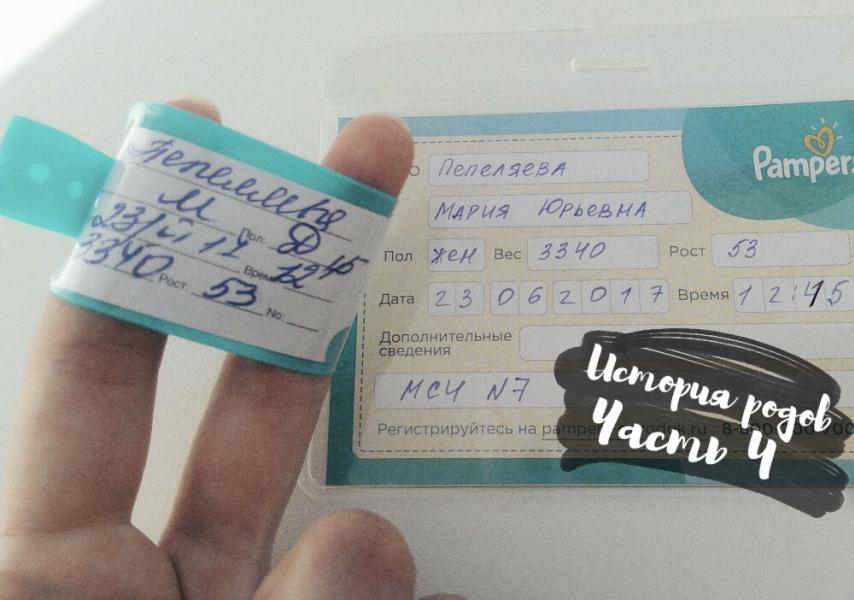 Пепеляева
М
Пол: Д
23/VI 17
Время 12 45
3340
Рост 53 №:
О
Пепеляева
Pampers
Мария Юрьевна
Пол жен Вес 3340 Рост 53
Дата 23 06 2017 Время 12:45
Дополнительные
сведения
МСЧ N7
Регистрируйтесь на
История родов
Часть 4